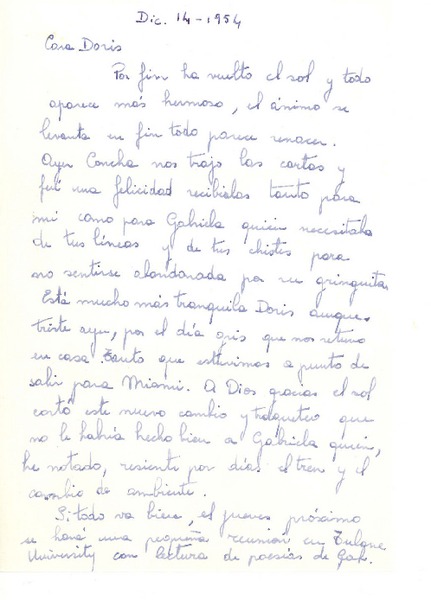 Dic. 14-1954
Cara Doris
Por fin ha vuelto el sol y todo
aparece más hermoso, el ánimo se
levanta en fin todo parece renacer.
Ayer Concha nos trajo las cartas y
fué una felicidad recibirlas tanto para
mí como para Gabriela quien necesitaba
de tus líneas y de tus chistes para
no sentirse abandonada por su gringuita.
Está mucho más tranquila Doris aunque
triste ayer, por el día gris que nos retuvo
en casa. Tanto que estuvimos a punto de
salir para Miami. A Dios gracias el sol
cortó este nuevo cambio y que
no le habría hecho bien a Gabriela quien,
he notado, resiente por días el tren y el
cambio de ambiente.
Si todo va bien, el jueves próximo
se hará una pequeña reunión en Tulane
University con lectura de poesías de Gab.